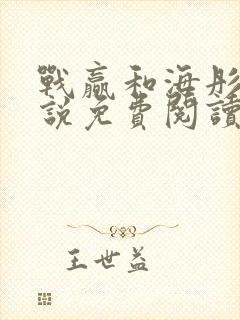 戰贏和海彤
說免費閱讀
王世益